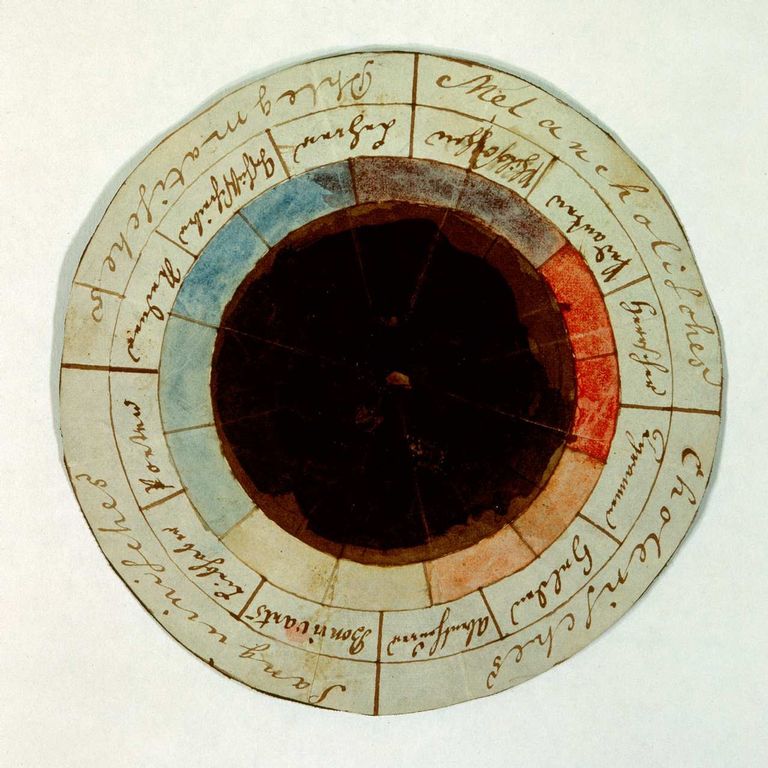 Melancholiſches
Choleriſches
Sanguiniſches
Phlegmatiſches
Philoſophen
Pedanten
Herrſcher
Tyrannen
Helden
Abenteurer
Bonvivants
Liebhaber
Poeten
Redner
Geſchichtſchreiber
Lehrer